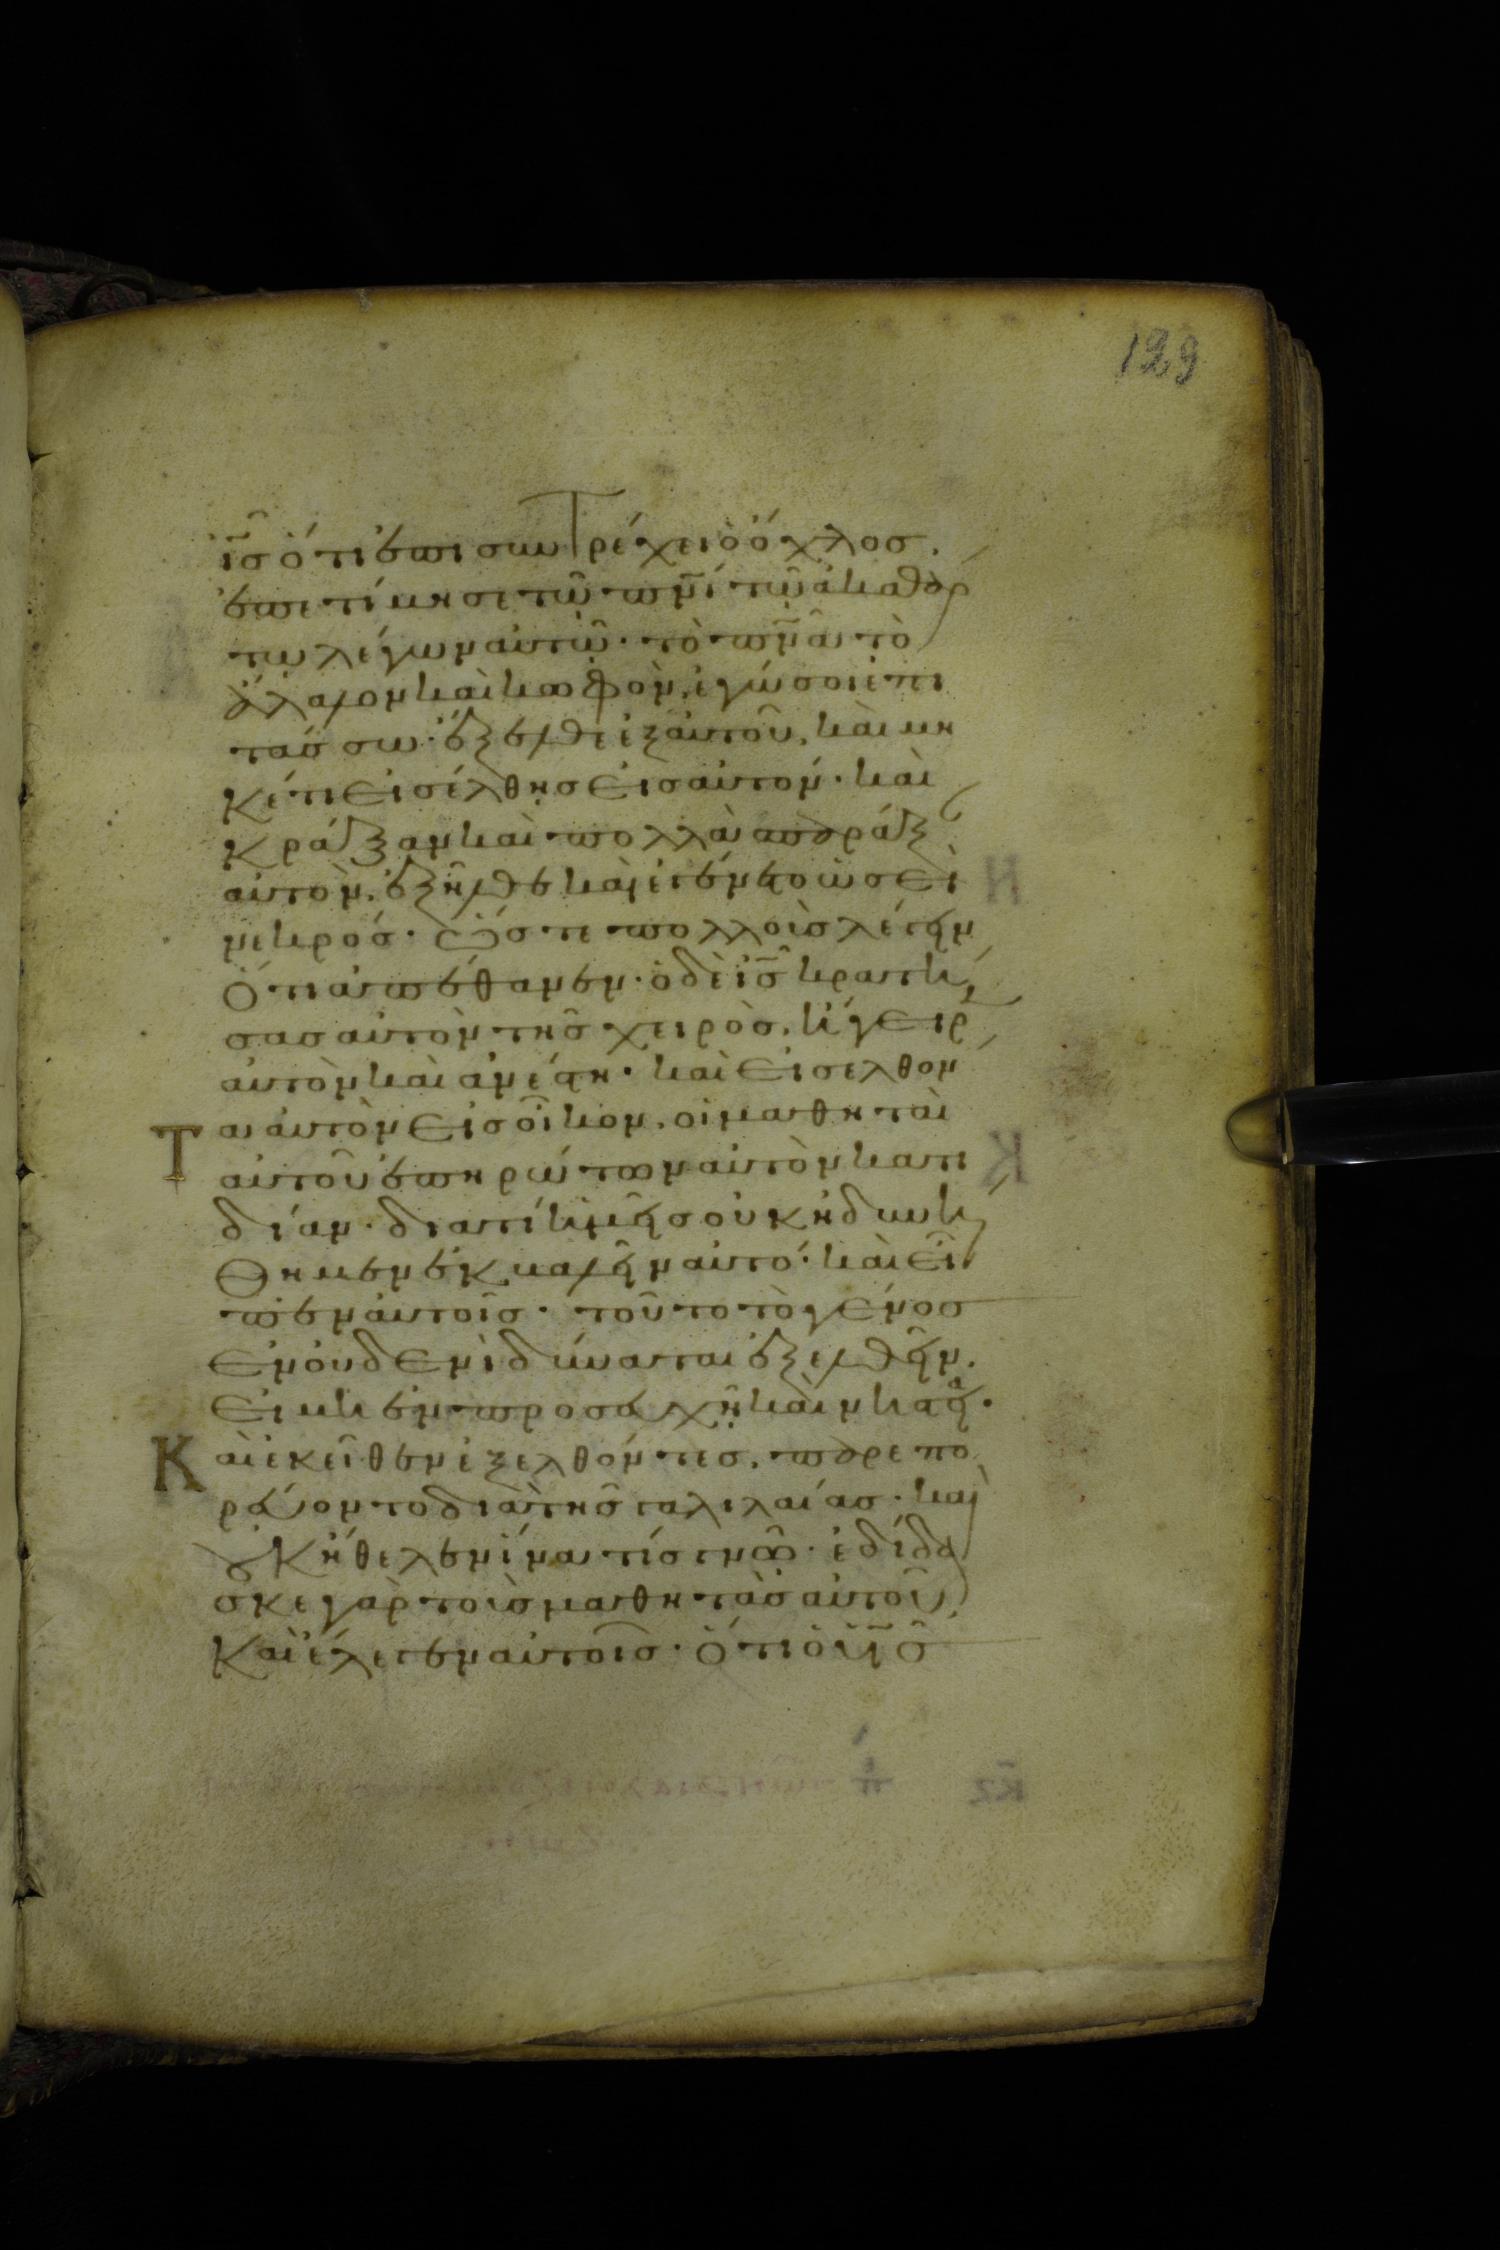 129
ἰ̅ς̅ ὅτι ἐπισυντρέχει ὁ ὄχλος.
ἐπετίμησε τῷ π̅ν̅ι̅ τῷ ἀκαθάρ
τω λέγων αὐτῷ· τὸ π̅ν̅α̅ τὸ
ἄλαλον καὶ κωφὸν, ἐγώ σοι ἐπι
τάσσω· ἔξελθε ἐξ αὐτοῦ, καὶ μη
κέτι εἰσέλθῃς εἰς αὐτόν· καὶ
κράξαν καὶ πολλὰ σπαράξαν
αὐτὸν, ἐξῆλθε καὶ ἐγένετο ὡσεὶ
νεκρός· ὥστε πολλοὺς λέγειν
ὅτι ἀπέθανεν· ὁ δὲ ἰ̅ς̅ κρατή
σας αὐτὸν τῆς χειρὸς, ἤγειρεν
αὐτὸν καὶ ἀνέστη· καὶ εἰσελθόν
τα αὐτὸν εἰς οἶκον, οἱ μαθηταὶ
αὐτοῦ ἐπηρώτων αὐτὸν κατι
δίαν· διατί ἡμεῖς οὐκ ἠδυνή
θημεν ἐκβαλεῖν αὐτό· καὶ εἶ
πεν αὐτοῖς· τοῦτο τὸ γένος
ἐν οὐδενὶ δύναται ἐξελθεῖν.
εἰ μὴ ἐν προσευχῇ καὶ νηστεία·
Καὶ ἐκεῖθεν ἐξελθόντες, παρεπο
ρεύοντο διὰ τῆς γαλιλαίας· καὶ
οὐκ ἤθελεν ἵνα τίς γνῶ· ἐδίδα
σκε γὰρ τοὺς μαθητὰς αὐτοῦ,
καὶ ἔλεγεν αὐτοῖς· ὅτι ὁ υ̅ς̅